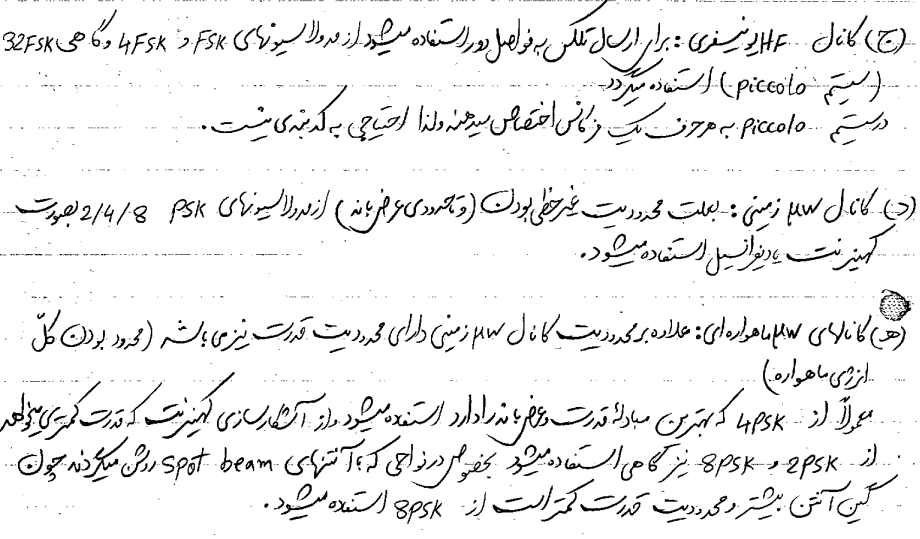 (ج) کانال HF یونیسفری : برای ارسال تلکس به فواصل دور استفاده میشود از مدولاسیونهای FSK و 4FSK و گاهی 32FSK
(سیستم piccolo) استفاده میگردد
درسیستم piccolo به هر حرف یک فرکانس اختصاص میدهند ولذا احتیاجی به کدبندی نیست .
(د) کانال μw زمینی : بعلت محدودیت غیرخطی بودن (و تاحدودی عرض باند) از مدولاسیونهای 2/4/8 PSK بصورت
کهیرنت یا دیفرانسیل استفاده میشود .
(هـ) کانالهای μw ماهواره ای : علاوه بر محدودیت کانال μw زمینی دارای محدودیت قدرت نیز می باشد (محدود بودن کلّ
انرژی ماهواره)
معمولاً از 4PSK که بهترین مبادلهٔ قدرت وعرض باند را دارد استفاده میشود واز آشکارسازی کهیرنت که قدرت کمتری میخواهد
از 2PSK و 8PSK نیز گاهی استفاده میشود بخصوص در نواحی که با آنتنهای spot beam روشن میگردند چون
گین آنتن بیشتر و محدودیت قدرت کمتر است از 8PSK استفاده میشود .